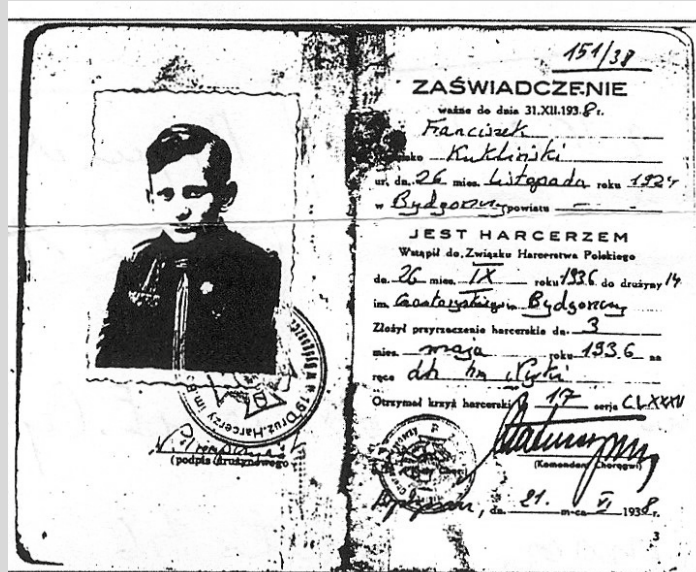 151/38
ZAŚWIADCZENIE
ważne do dnia 31.XII.1938 r.
Franciszek
Kukliński
ur. dn. 26 mies. Listopada roku 1924
w Bydgoszczy powiatu —
JEST HARCERZEM
Wstąpił do Związku Harcerstwa Polskiego
dn. 26 mies. IX roku 1936 do drużyny 14
im. Bydgoszczy
Złożył przyrzeczenie harcerskie dn. 3
mies. maja roku 1936 na
ręce dh hm
Otrzymał krzyż harcerski 17 serja CLXXXV
(Komendant Chorągwi)
Bydgoszcz, dn. 21. m-ca VI 1938 r.
3
19 Druż. Harcerzy im.
(podpis drużynowego